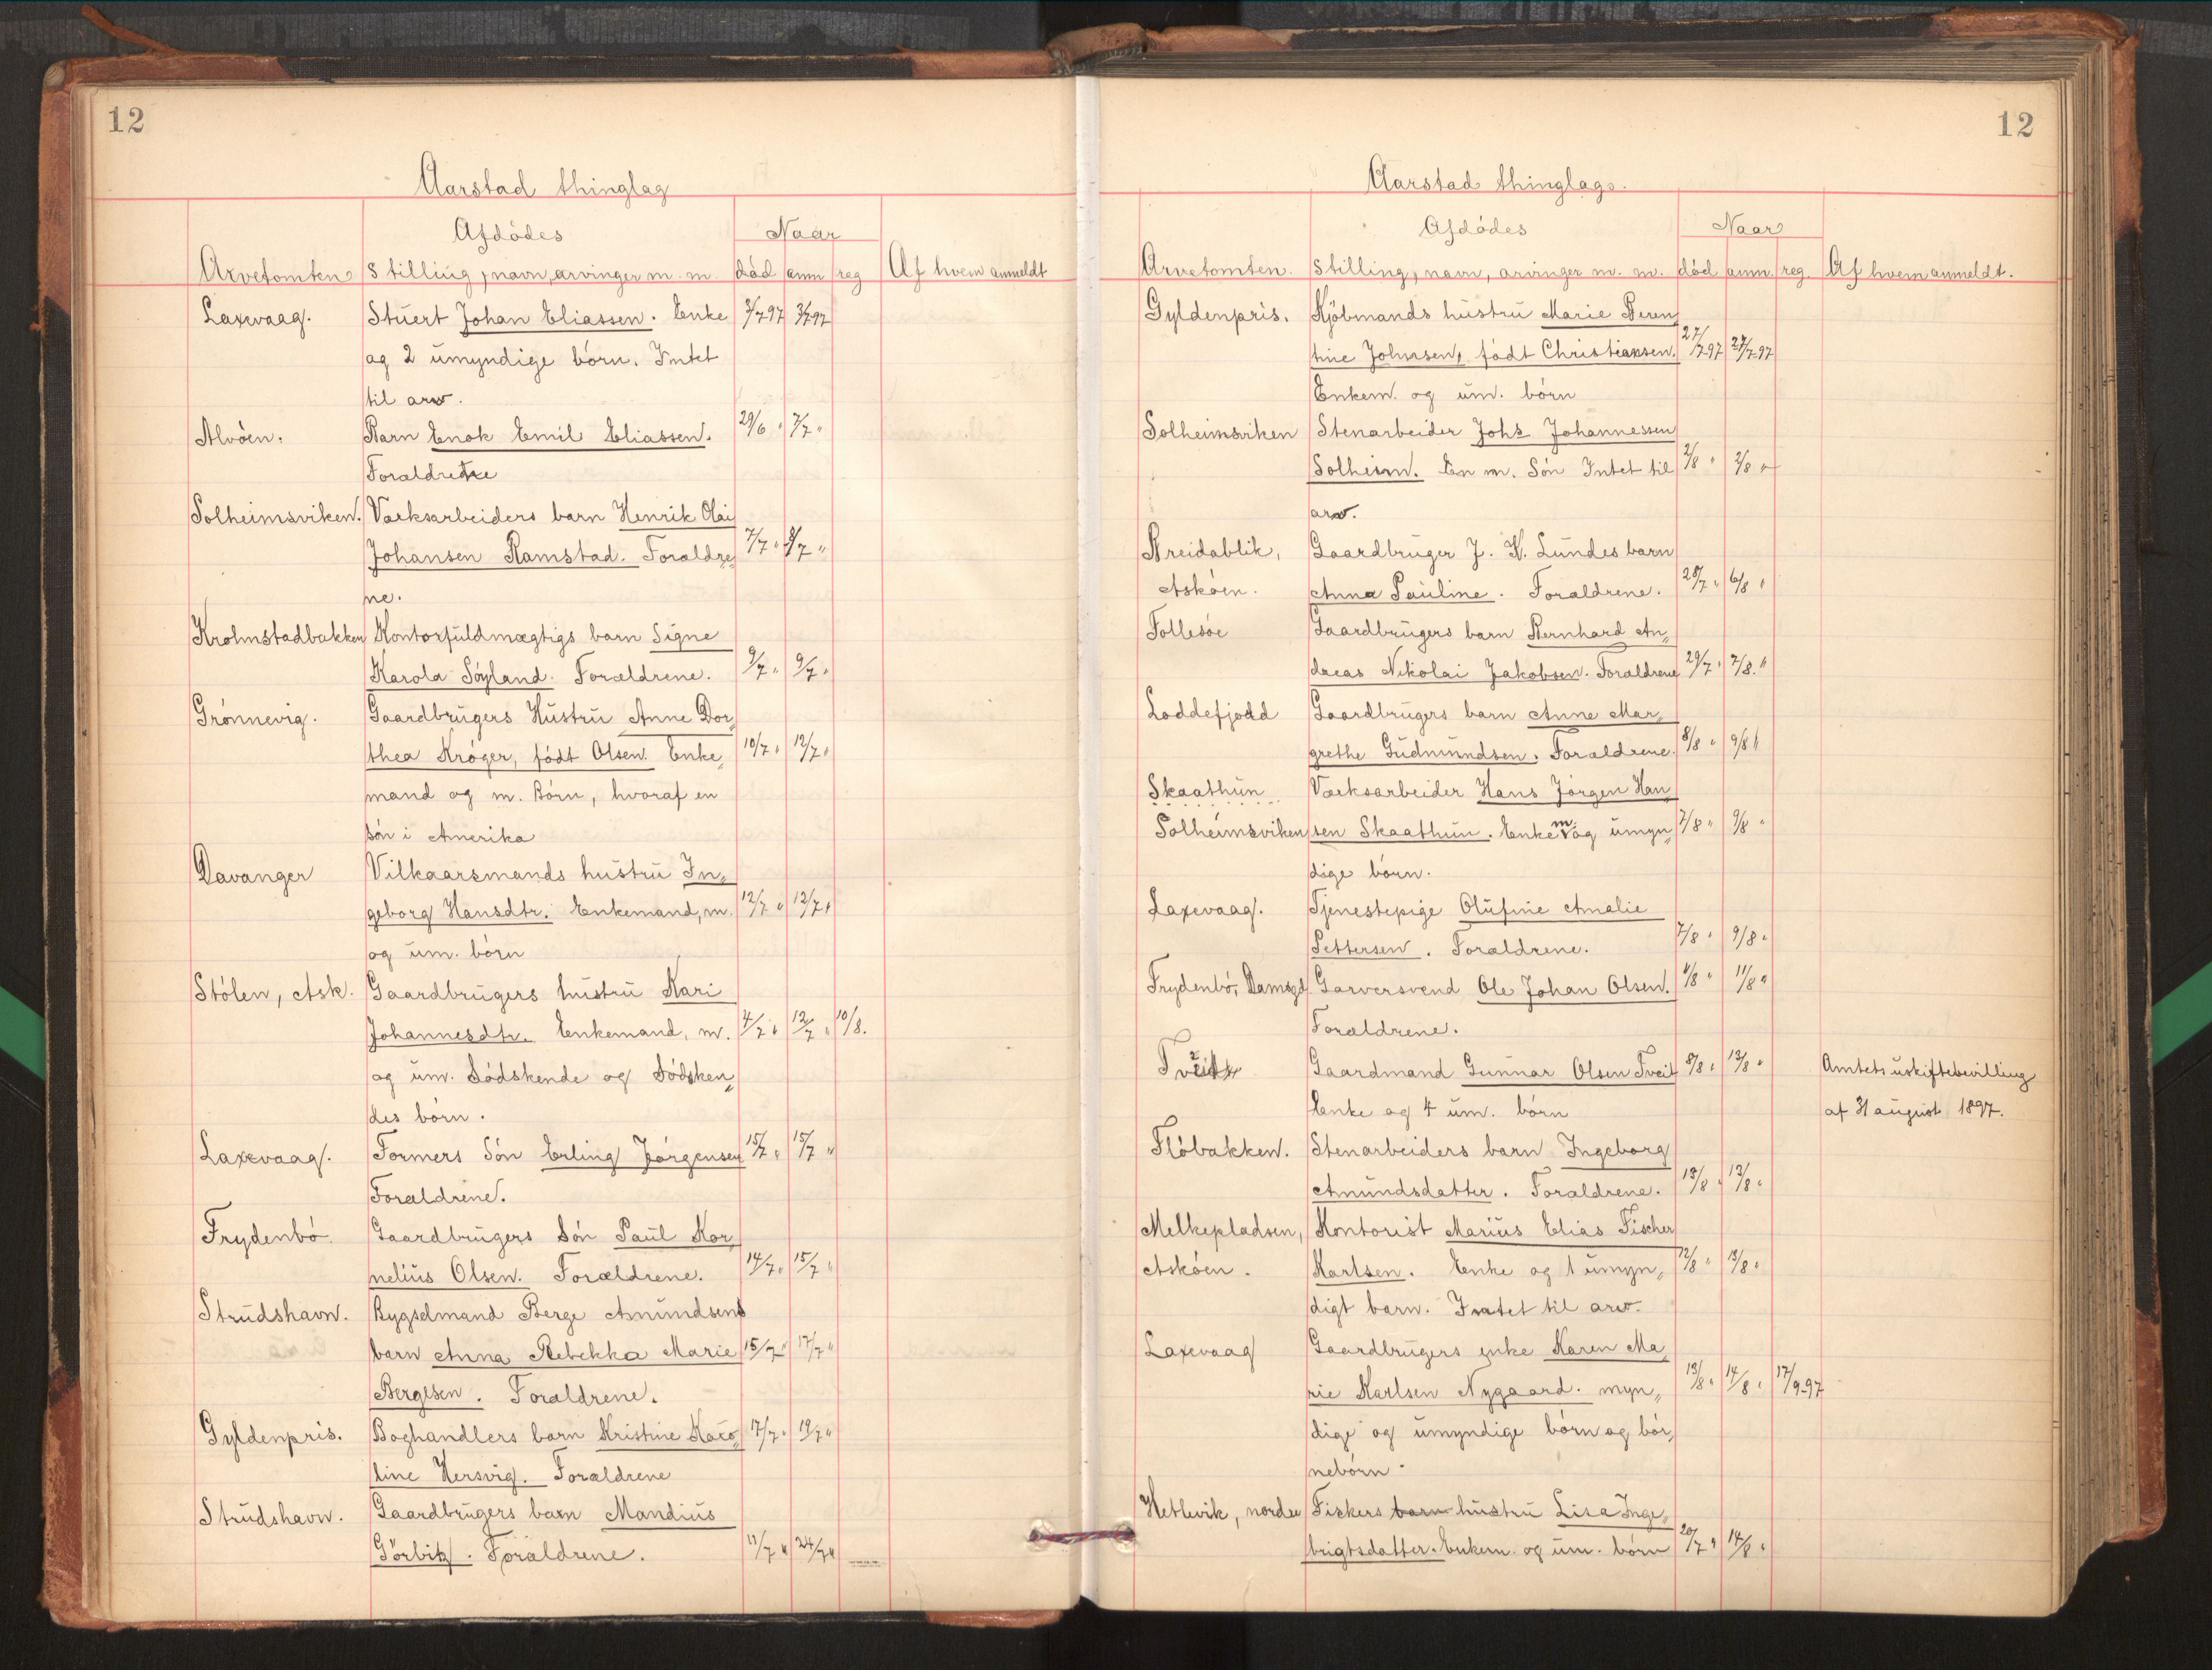 12
Aarstad thinglag
Afdödes
Naar
Arvetomten
Stilling, navn, arvinger m. m.
död
anm
reg
Af hvem anmeldt
Laxevaag. Stuert Johan Eliassen. Enke 3/7 97 3/7 97
og 2 umyndige börn. Intet
til arv.
Alvöen. Barn Enok Emil Eliassen. 29/6 " 7/7 "
Foraldrene
Solheimsviken. Værksarbeiders barn Henrik Olai
Johansen Ramstad. Foraldre 7/7 " 8/7 "
ne.
Krohnstadbakken Kontorfuldmægtigs barn Signe
Karola Söyland. Forældrene. 9/7 " 9/7 "
Grönnevig. Gaardbrugers Hustru Anne Dor„
thea Kröger, födt Olsen. Enke„ 10/7 " 12/7 "
mand og m. Börn, hvoraf en
sön i Amerika
Davanger Vilkaarsmands hustru In„
geborg Hansdtr. Enkemand, m. 12/7 " 12/7 "
og um. börn
Stölen, Ask. Gaardbrugers hustru Kari
Johannesdtr. Enkemand, m. 4/7 " 12/7 " 10/8.
og um. Södskende og Södsken„
des börn.
Laxevaag. Formers Sön Erling Jörgensen 15/7 " 15/7 "
Foraldrene.
Frydenbö. Gaardbrugers Sön Paul Kor„
nelius Olsen. Forældrene. 14/7 " 15/7 "
Strudshavn. Bygselmand Berge Amundsens
barn Anna Rebekka Marie 15/7 " 17/7 "
Bergesen. Foraldrene.
Gyldenpris. Boghandlers barn Kristine Karo„ 17/7 " 19/7 "
line Hersvig. Foraldrene
Strudshavn. Gaardbrugers barn Mandius
Görbitz. Foraldrene. 11/7 " 24/7 "
12
Aarstad thinglags.
Afdödes
Naar
Arvetomten.
Stilling, navn, arvinger m. m.
död
anm.
reg.
Af hvem anmeldt.
Gyldenpris. Kjöbmands hustru Marie Beren„
tine Johnsen, födt Christiansen. 27/7 97 27/7 97
Enkem. og um. börn
Solheimsviken Stenarbeider Johs Johannessen
Solheim. En m. Sön Intet til 2/8 " 2/8 "
arv.
Breidablik, Gaardbruger J. K. Lundes barn
Asköen. Anna Pauline. Foraldrene. 28/7 " 6/8 "
Follesöe Gaardbrugers barn Bernhard An„
dreas Nikolai Jakobsen. Foraldrene 29/7 " 7/8. "
Loddefjord Gaardbrugers barn Anne Mar„
grethe Gudmundsen. Foraldrene. 8/8 " 9/8 "
Skaathun Værksarbeider Hans Jörgen Han„
Solheimsviken sen Skaathun. Enke m. og umyn„ 7/8 " 9/8 "
dige börn.
Laxevaag. Tjenestepige Olufine Amalie
Pettersen. Foraldrene. 7/8 " 9/8 "
Frydenbö, Damsgd. Garversvend Ole Johan Olsen. 11/8 " 11/8 "
Foraldrene.
Tveit Gaardmand Gunnar Olsen Tveit 8/8 " 13/8 " Amtets uskiftebevilling
Enke og 4 um. börn af 31 august 1897.
Flöbakken. Stenarbeiders barn Ingeborg
Amundsdatter. Foraldrene. 13/8 " 13/8 "
Melkepladsen, Kontorist Marius Elias Fischer
Asköen. Karlsen. Enke og 1 umyn„ 12/8 " 13/8 "
digt barn. Intet til arv.
Laxevaag Gaardbrugers enke Karen Ma„
rie Karlsen Nygaard. myn„ 13/8 " 14/8 " 17/9 97
dige og umyndige börn og bör„
nebörn.
Hetlevik, nordre Fiskers barn hustru Lisa Inge„
brigtsdatter. Enkem. og um. börn 20/7 " 14/8 "